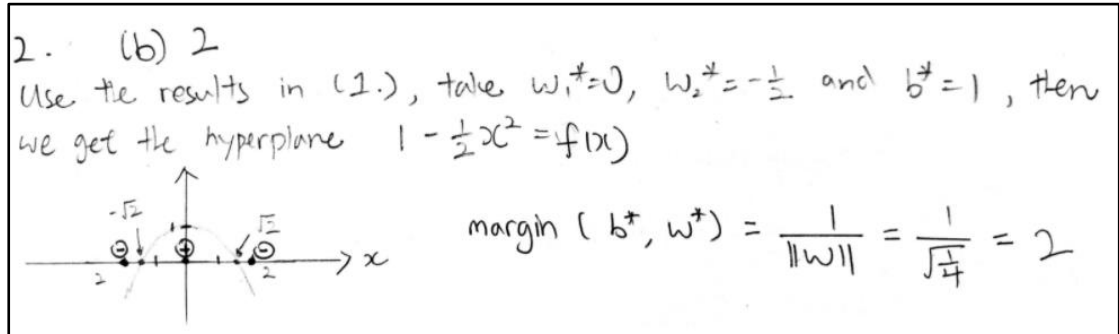 2. (b) 2
Use the results in (1.), take w₁*=0, w₂*=-1/2 and b*=1, then
we get the hyperplane 1 - 1/2 x² = f(x)
margin (b*, w*) = 1/||w|| = 1/√(1/4) = 2
-√2 √2
⊖ ⊕ ⊖
2 2 x